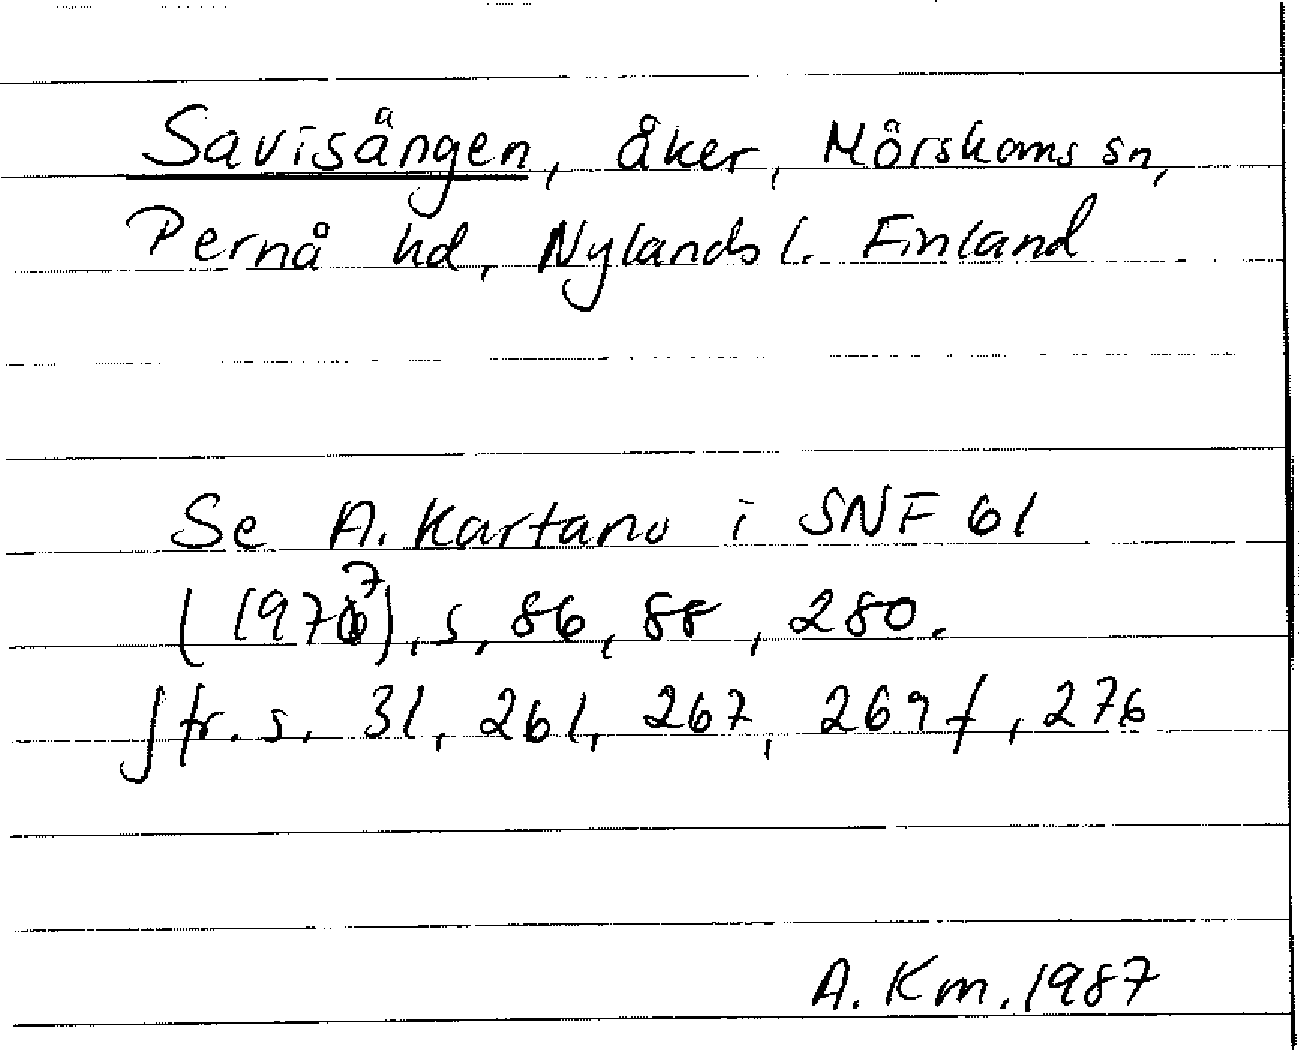 Savisängen, åker, Mörskoms sn,
Pernå hd, Nylands l. Finland
Se A. Kartano i SNF 61
(1977), s, 86, 88, 280.
Jfr. s. 31, 261, 267, 269 f, 276
A. Km. 1987